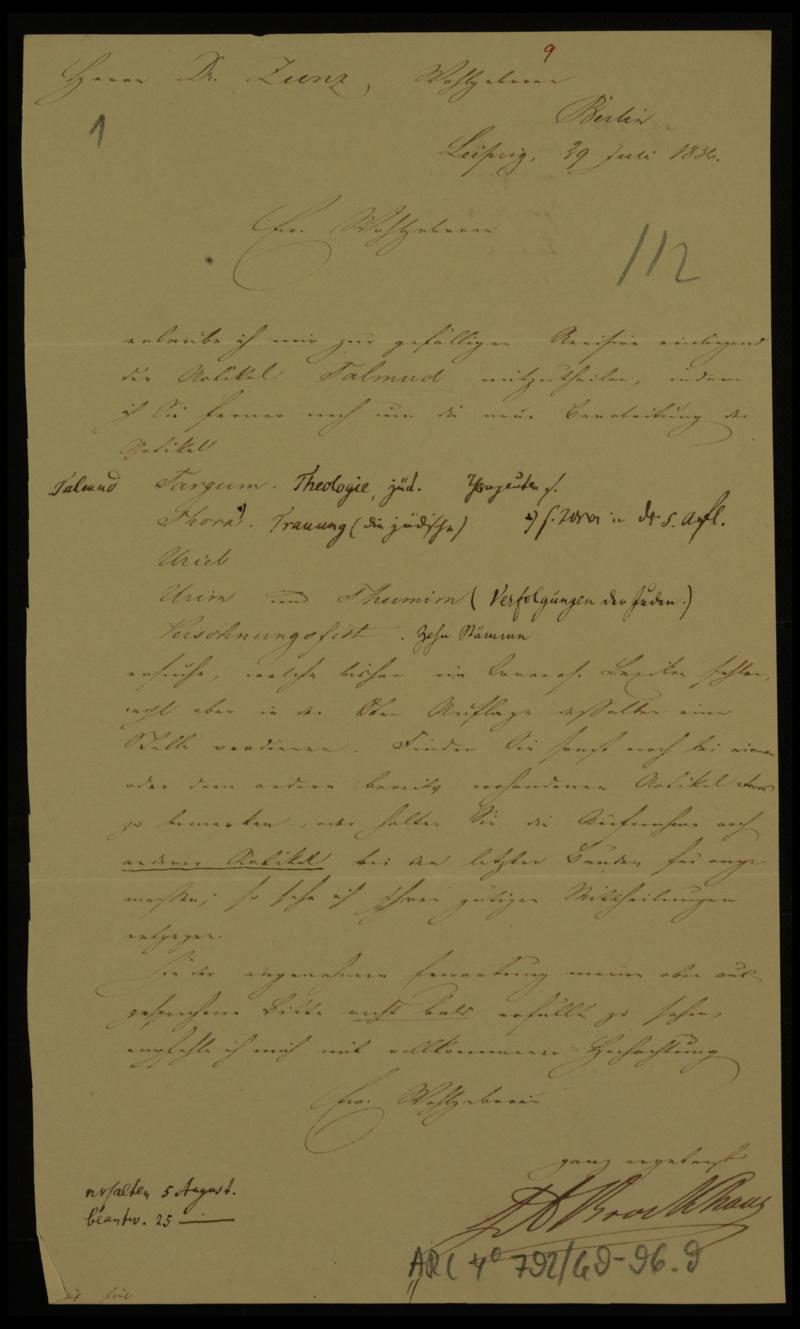 9
Herrn Dr. Zunz, Wohlgeboren
Berlin
1
Leipzig, 29 Juli 1836.
Ew. Wohlgeboren
112
erlaube ich mir zur gefälligen Revision einliegend
den Artikel Talmud mitzutheilen, indem
ich Sie ferner noch um die neue Bearbeitung der
Artikel
Talmud Targum. Theologie, jüd.
Thora. Trauung (die jüdische)
Urieb
Urim und Thumim (Verfolgungen der Juden.)
Versöhnungsfest. Zehn Stämme
ersuche, welche bisher im Convers. Lexikon fehlen,
wohl aber in der 8ten Auflage desselben eine
Stelle verdienen. Finden Sie sonst noch bei einem
oder dem andern bereits vorhandenen Artikel etwas
zu bemerken, oder halten Sie die Aufnahme noch
anderer Artikel bei den letzten Bänden für ange
messen, so sehe ich Ihren gütigen Mittheilungen
entgegen.
In der angenehmen Erwartung meine oben aus
gesprochene Bitte recht bald erfüllt zu sehen,
empfehle ich mich mit vollkommener Hochachtung
Ew. Wohlgeboren
ganz ergebenst
F A Brockhaus
erhalten 5 August.
beantw. 25 —
ARC 4° 792/G9-96.9